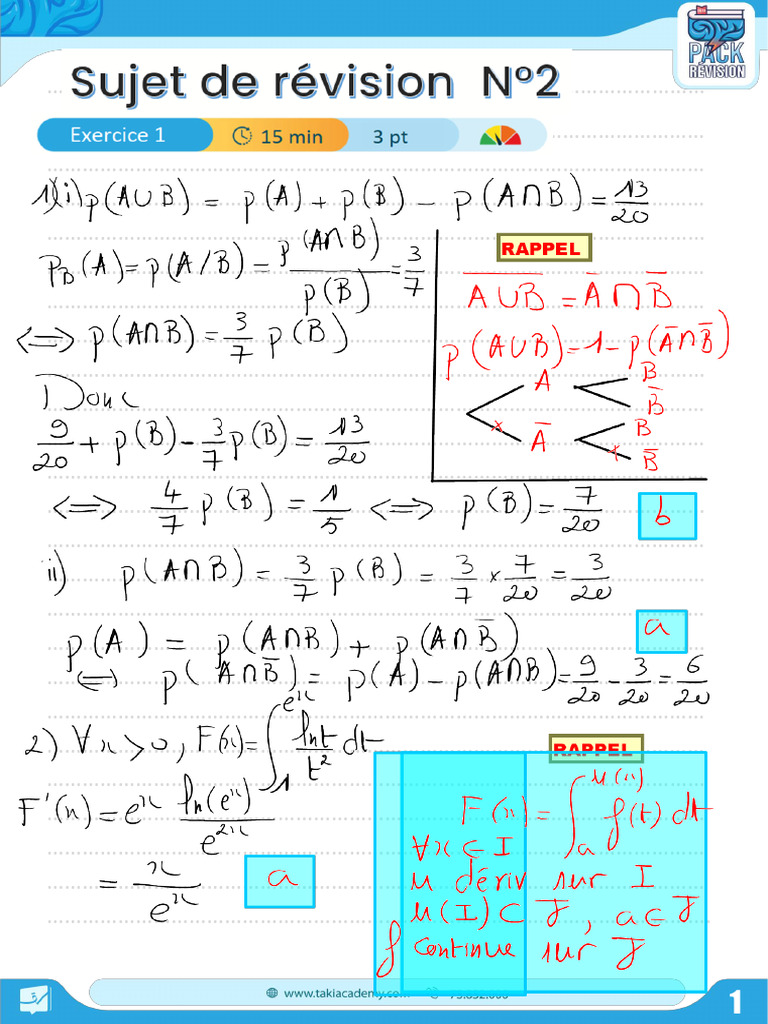 PACK
RÉVISION
Sujet de révision N°2
Exercice 1 15 min 3 pt
1) i) p(A∪B) = p(A) + p(B) − p(A∩B) = 13/20
p_B(A) = p(A/B) = p(A∩B)/p(B) = 3/7
⟺ p(A∩B) = 3/7 p(B)
Donc
9/20 + p(B) − 3/7 p(B) = 13/20
⟺ 4/7 p(B) = 1/5 ⟺ p(B) = 7/20 b
RAPPEL
\overline{A∪B} = \overline{A} ∩ \overline{B}
p(A∪B) = 1 − p(\overline{A}∩\overline{B})
A B
\overline{B}
\overline{A} B
\overline{B}
ii) p(A∩B) = 3/7 p(B) = 3/7 × 7/20 = 3/20
a
p(A) = p(A∩B) + p(A∩\overline{B})
⟺ p(A∩\overline{B}) = p(A) − p(A∩B) = 9/20 − 3/20 = 6/20
2) ∀x>0, F(x) = ∫_1^{e^x} ln t / t² dt
F'(x) = e^x ln(e^x)/e^{2x}
= x/e^x a
RAPPEL
F(x) = ∫_a^{u(x)} f(t) dt
∀x ∈ I
u dériv sur I
u(I) ⊂ J, a ∈ J
f continue sur J
www.takiacademy.com
1